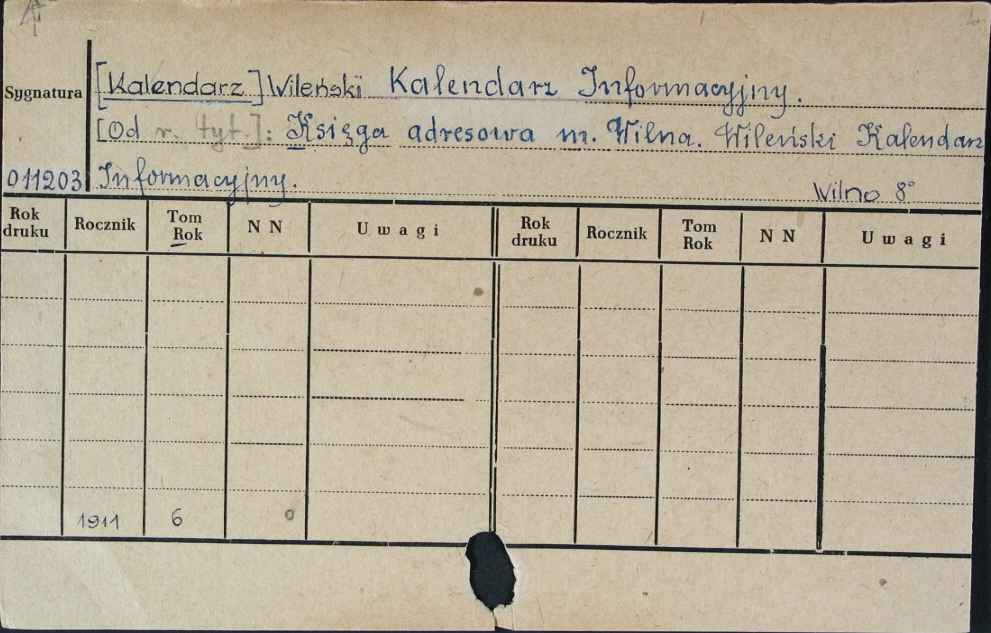 [Kalendarz] Wileński Kalendarz Informacyjny.
Sygnatura
[Od r. tyt.]: Księga adresowa m. Wilna. Wileński Kalendarz
011203 Informacyjny. Wilno 8°
Rok druku Rocznik Tom Rok N N Uwagi Rok druku Rocznik Tom Rok N N Uwagi
1911 6 0